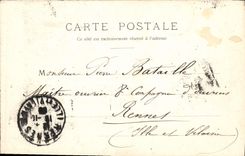 CARTE POSTALE
Ce côté est exclusivement réservé à l'adresse
Monsieur Pierre Bataille
Maître ouvrier 8e Compagnie d'ouvriers
Rennes
Ille et Vilaine
RENNES